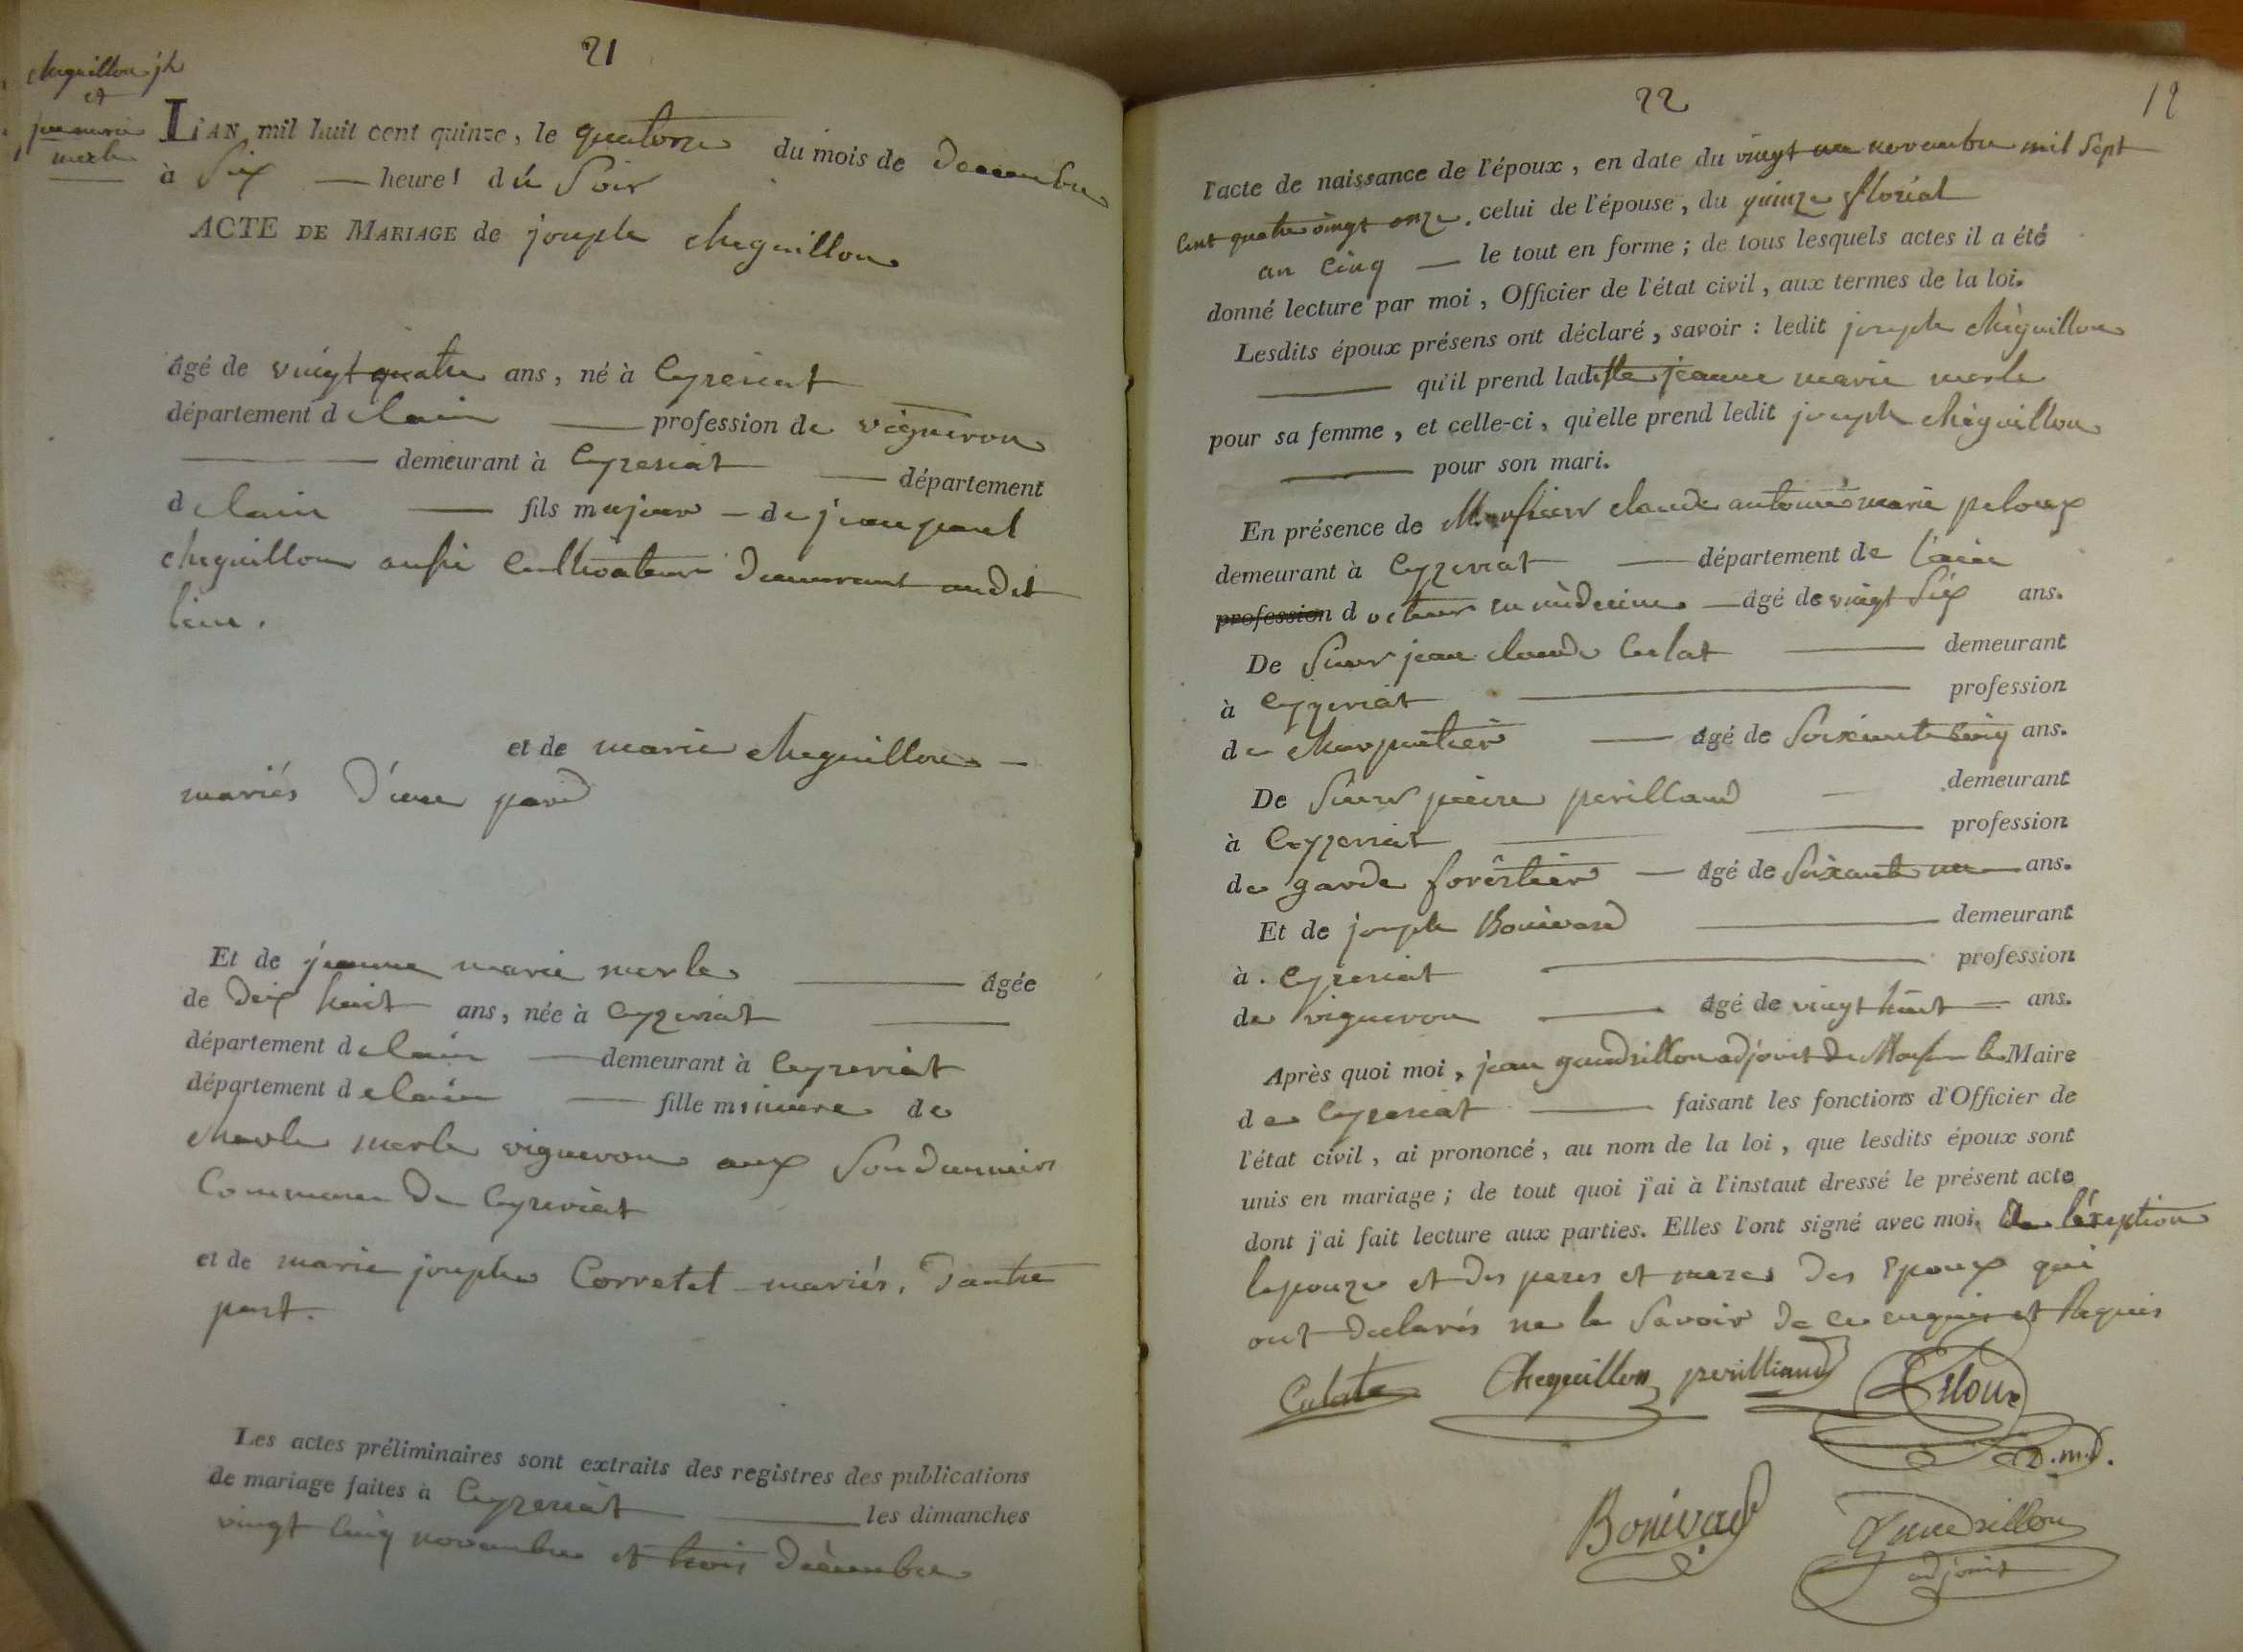 21
cheguillon jh
et
jne marie
merle
L'AN mil huit cent quinze, le quatorze du mois de decembre
à six heures du soir
ACTE DE MARIAGE de joseph cheguillon
âgé de vingt quatre ans, né à Ceyzeriat
département de lain profession de vigneron
demeurant à Ceyzeriat département
de lain fils majeur de jean paul
cheguillon aussi Cultivateur demeurant audit
lieu.
et de marie cheguillon
mariés d'une pard
Et de jeanne marie merle âgée
de dix huit ans, née à Ceyzeriat
département de lain demeurant à Ceyzeriat
département de lain fille mineure de
Charle merle vigneron aux
Commune de Ceyzeriat
et de marie josephe Corretel mariés, d'autre
part.
Les actes préliminaires sont extraits des registres des publications
de mariage faites à Ceyzeriat les dimanches
vingt cinq novembre et trois décembre
22
12
l'acte de naissance de l'époux, en date du vingt un novembre mil sept
cent quatre vingt onze. celui de l'épouse, du quinze floréal
an cinq le tout en forme; de tous lesquels actes il a été
donné lecture par moi, Officier de l'état civil, aux termes de la loi.
Lesdits époux présens ont déclaré, savoir: ledit joseph chéguillon
qu'il prend ladite jeanne marie merle
pour sa femme, et celle-ci, qu'elle prend ledit joseph chéguillon
pour son mari.
En présence de Monsieur claude antoine marie peloux
demeurant à Ceyzeriat département de l'ain
profession docteur en médecine âgé de vingt six ans.
De Sieur jean claude Culat demeurant
à Ceyzeriat profession
de charpentier âgé de soixante cinq ans.
De Sieur pierre perilland demeurant
à Ceyzeriat profession
de garde forêstier âgé de soixante un ans.
Et de joseph Bonivard demeurant
à Ceyzeriat profession
de vigneron âgé de vingt huit ans.
Après quoi moi, jean gaudrillon adjoint de Monsieur le Maire
de Ceyzeriat faisant les fonctions d'Officier de
l'état civil, ai prononcé, au nom de la loi, que lesdits époux sont
unis en mariage; de tout quoi j'ai à l'instaut dressé le présent acte
dont j'ai fait lecture aux parties. Elles l'ont signé avec moi,
lepouze et des peres et meres des Epoux qui
ont declarés ne le savoir de ce enquis et requis
Culat Cheguillon perilliand Peloux
D.m.P.
Bonivard Gaudrillon
adjoint